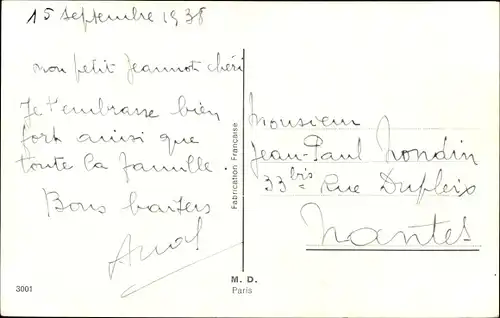 15 septembre 1938
mon petit Jeannot chéri
Je t'embrasse bien
fort ainsi que
toute la famille.
Bons baisers
Monsieur
Jean-Paul Nondin
33 bis Rue Dupleix
Nantes
Fabrication Française
3001
M. D.
Paris